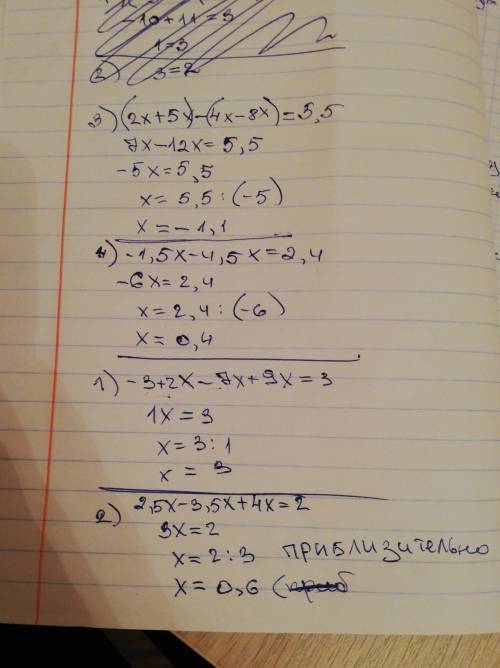 -10+11=3
1=3
2) 3=2
3) (2x+5x)-(4x-8x)=5,5
7x-12x=5,5
-5x=5,5
x=5,5:(-5)
x=-1,1
4) -1,5x-4,5x=2,4
-6x=2,4
x=2,4:(-6)
x=0,4
1) -3+2x-7x+9x=3
1x=3
x=3:1
x=3
2) 2,5x-3,5x+4x=2
3x=2
x=2:3 приблизительно
x=0,6 (